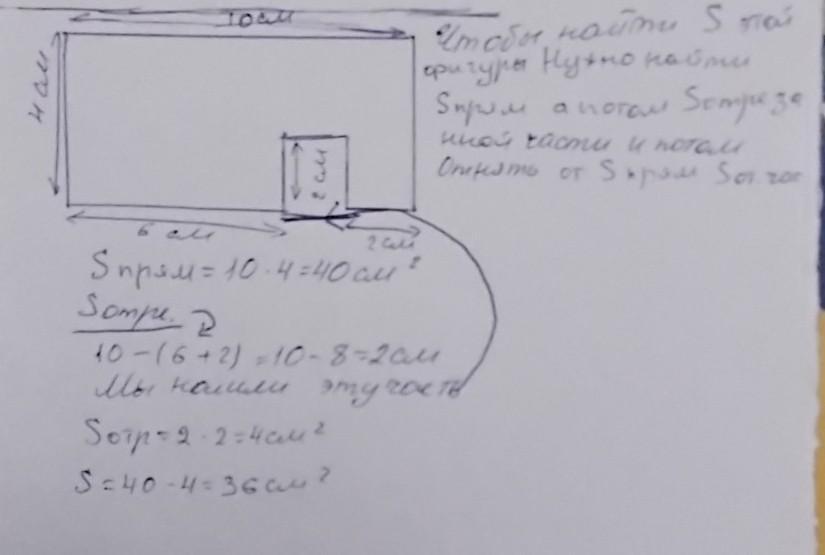 10см
Чтобы найти S этой
фигуры Нужно найти
4 см
Sпрям а потом Sотреза
нной части и потом
2 см
Отнять от Sпрям Sот.час
6 см
2см
Sпрям = 10 · 4 = 40 см²
Sотре.
10 - (6 + 2) = 10 - 8 = 2 см
Мы нашли эту часть
Sотр = 2 · 2 = 4 см²
S = 40 - 4 = 36 см²